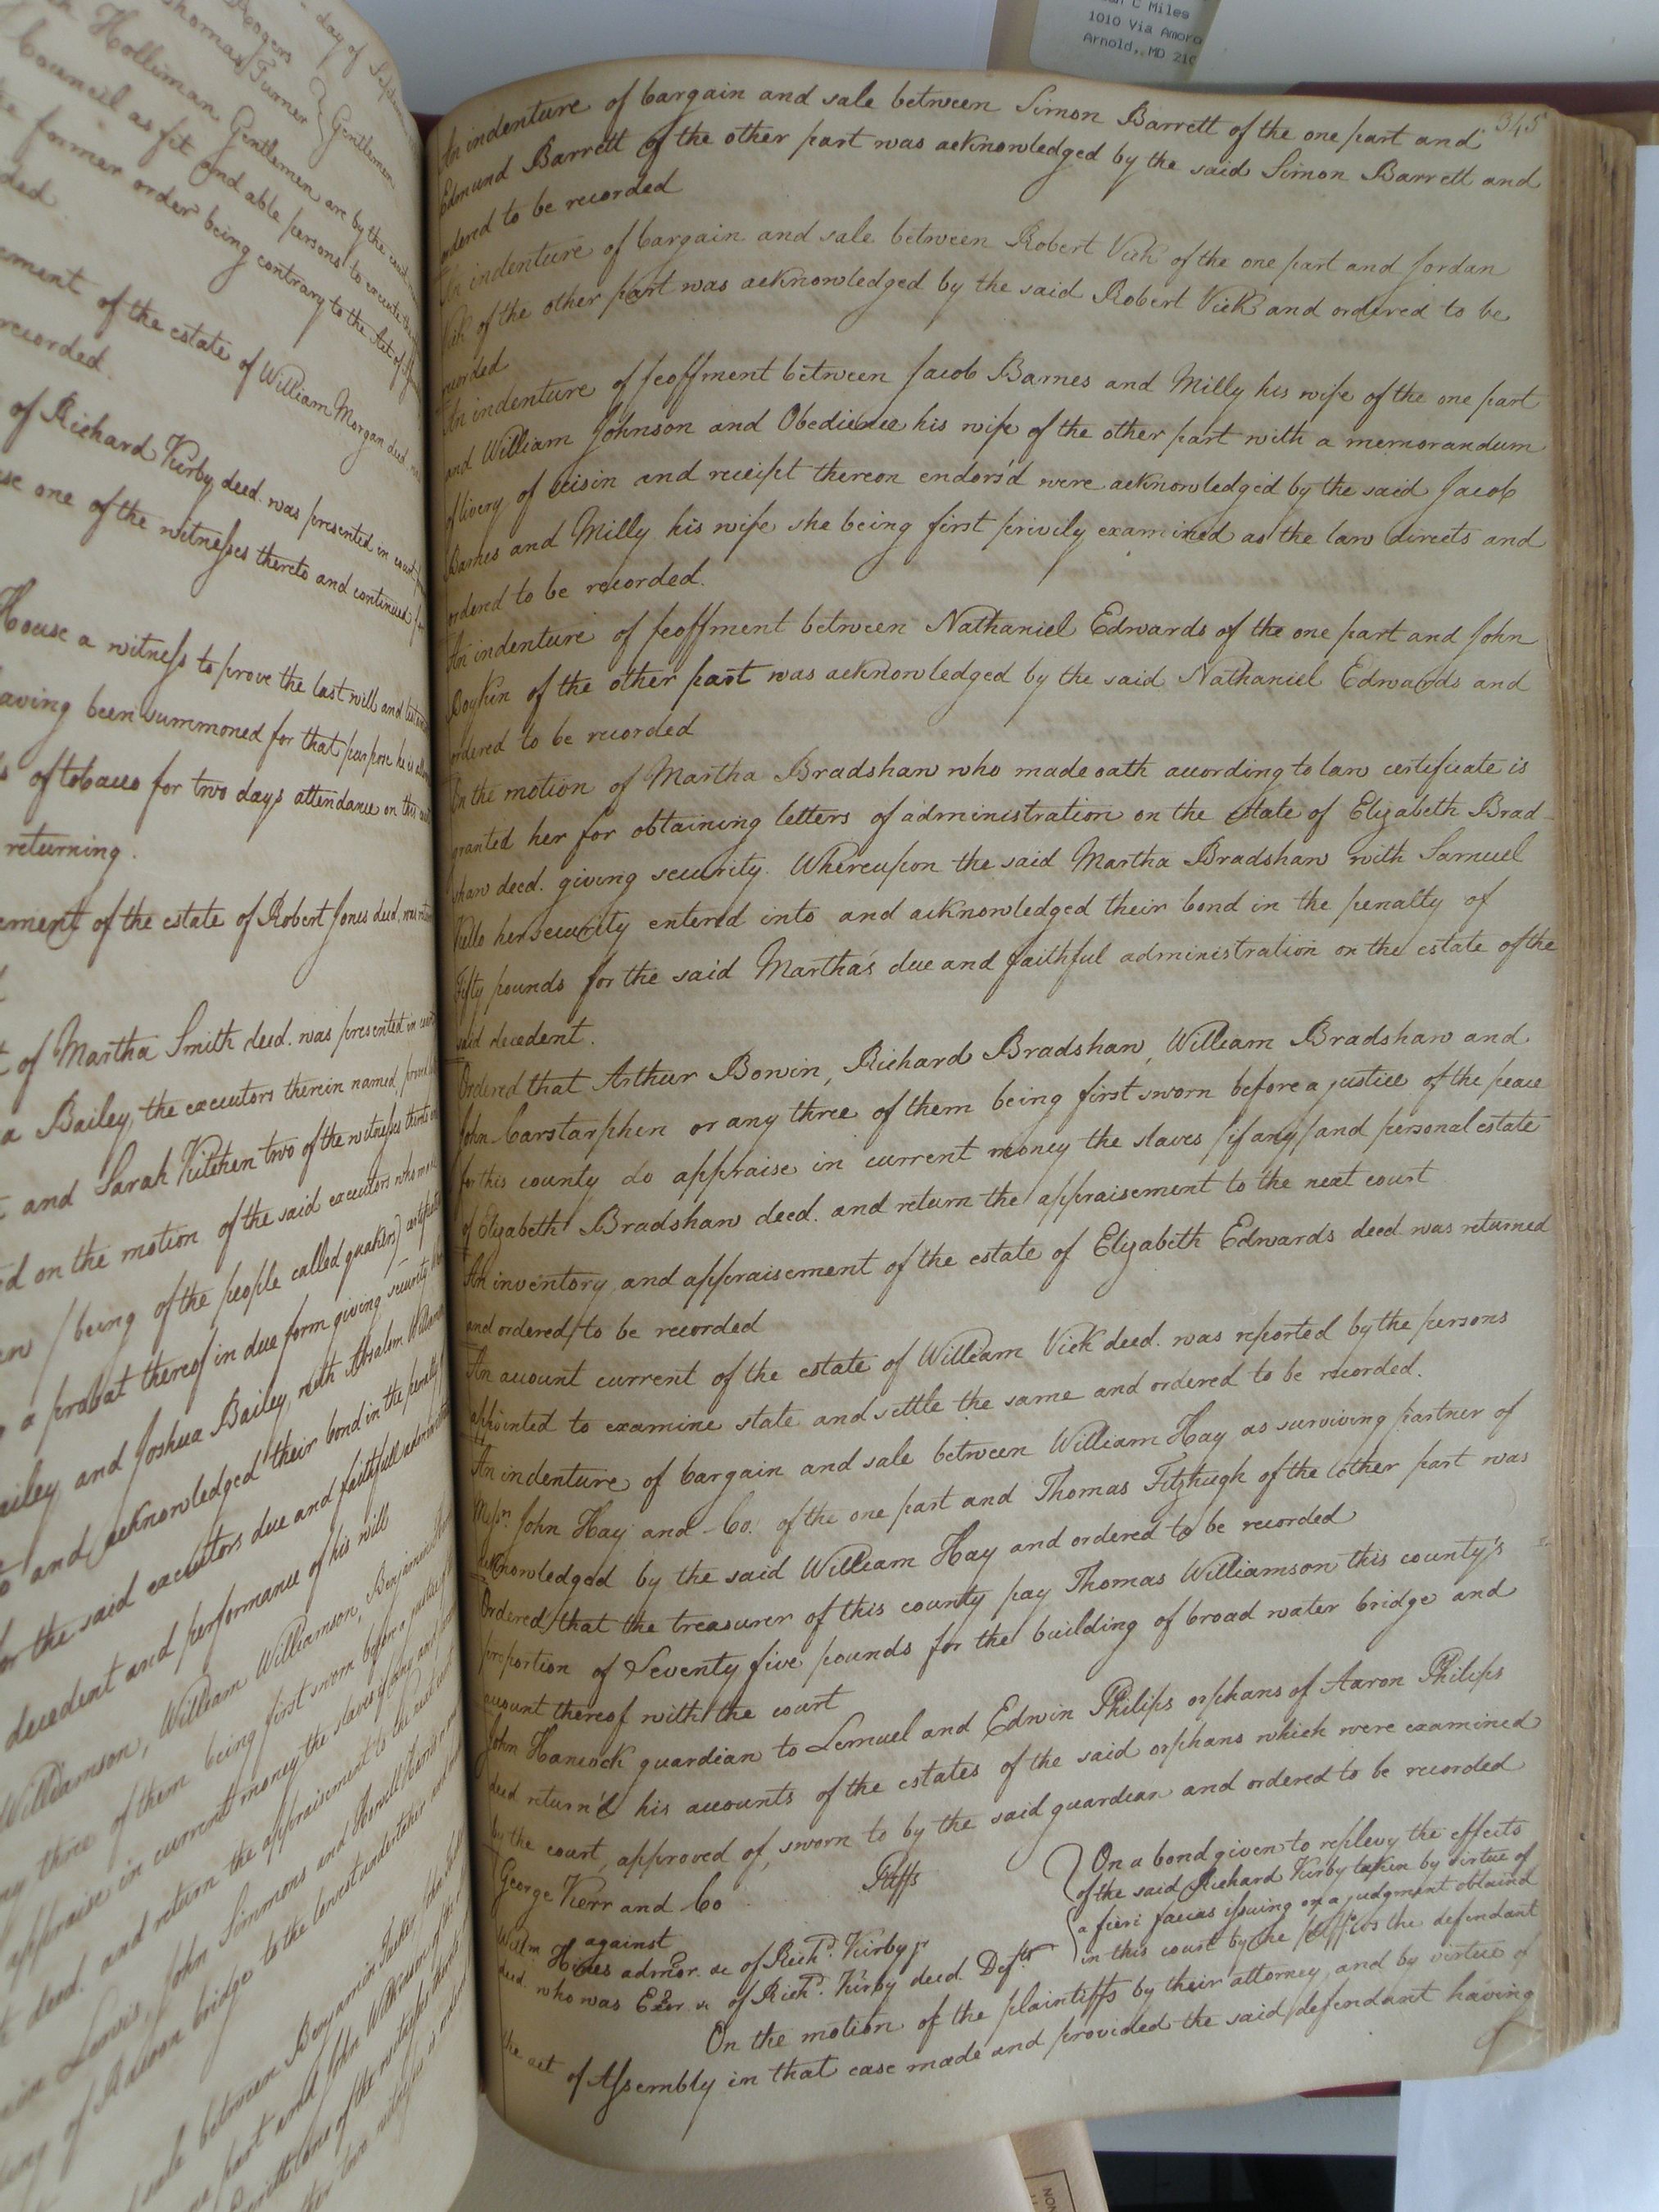 day of Septem
Rogers
Thomas Turner } Gentlemen
Holliman Gentlemen are by the court
Council as fit and able persons to execute the
former order being contrary to the Act of
ded.
ement of the estate of William Morgan deed.
recorded.
of Richard Kirby deed. was presented in court
one of the witnesses thereto and continued for
House a witness to prove the last will and
aving been summoned for that purpose he is
of tobacco for two days attendance on this
returning.
ement of the estate of Robert Jones deed. was
of Martha Smith deed. was presented in court
a Bailey, the executors therein named,
and Sarah Kitchen two of the witnesses
d on the motion of the said executors who
/ being of the people called quakers)
a probat thereof in due form giving security
ailey and Joshua Bailey with Absalom
and acknowledged their bond in the penalty
or the said executors due and faithfull
decedent and performance of his will
Williamson, William Williamson, Benjamin
ny three of them being first sworn before a justice
appraise in current money the slaves if any and
deed. and return the appraisement to the next court
Lewis, John Simmons and
of bridge to the lowest undertaker
sale between Benjamin
part and John Wilkinson of the
one of the witnesses
345
An indenture of bargain and sale between Simon Barrett of the one part and
Edmund Barrett of the other part was acknowledged by the said Simon Barrett and
ordered to be recorded
An indenture of bargain and sale between Robert Vick of the one part and Jordan
Vick of the other part was acknowledged by the said Robert Vick and ordered to be
recorded
An indenture of feoffment between Jacob Barnes and Milly his wife of the one part
and William Johnson and Obedience his wife of the other part with a memorandum
of livery of seisin and receipt thereon endors'd were acknowledged by the said Jacob
Barnes and Milly his wife she being first privily examined as the law directs and
ordered to be recorded.
An indenture of feoffment between Nathaniel Edwards of the one part and John
Boykin of the other part was acknowledged by the said Nathaniel Edwards and
ordered to be recorded
On the motion of Martha Bradshaw who made oath according to law certificate is
granted her for obtaining letters of administration on the estate of Elizabeth Brad-
shaw deed. giving security. Whereupon the said Martha Bradshaw with Samuel
Kello her security entered into and acknowledged their bond in the penalty of
Fifty pounds for the said Martha's due and faithful administration on the estate of the
said decedent.
Ordered that Arthur Bowin, Richard Bradshaw, William Bradshaw and
John Carstarphen or any three of them being first sworn before a justice of the peace
for this county do appraise in current money the slaves /if any/ and personal estate
of Elizabeth Bradshaw deed. and return the appraisement to the next court
An inventory and appraisement of the estate of Elizabeth Edwards deed was returned
and ordered to be recorded
An account current of the estate of William Vick deed. was reported by the persons
appointed to examine state and settle the same and ordered to be recorded.
An indenture of bargain and sale between William Hay as surviving partner of
Messrs. John Hay and Co. of the one part and Thomas Fitzhugh of the other part was
acknowledged by the said William Hay and ordered to be recorded
Ordered that the treasurer of this county pay Thomas Williamson this county's
proportion of Seventy five pounds for the building of broad water bridge and
account thereof with the court
John Hancock guardian to Lemuel and Edwin Philips orphans of Aaron Philips
deed return'd his accounts of the estates of the said orphans which were examined
by the court, approved of, sworn to by the said guardian and ordered to be recorded
George Kerr and Co Pltffs
against
Willm Hines admor. &c of Richd. Kirby jr
deed. who was Exor. &c of Richd. Kirby deed. Deft
} On a bond given to replevy the effects
of the said Richard Kirby taken by virtue of
a fieri facias issuing on a judgment obtaind
in this court by the pltffs vs the defendant
On the motion of the plaintiffs by their attorney, and by virtue of
the act of Assembly in that case made and provided the said defendant having
C Miles
1010 Via Amoro
Arnold, MD 210